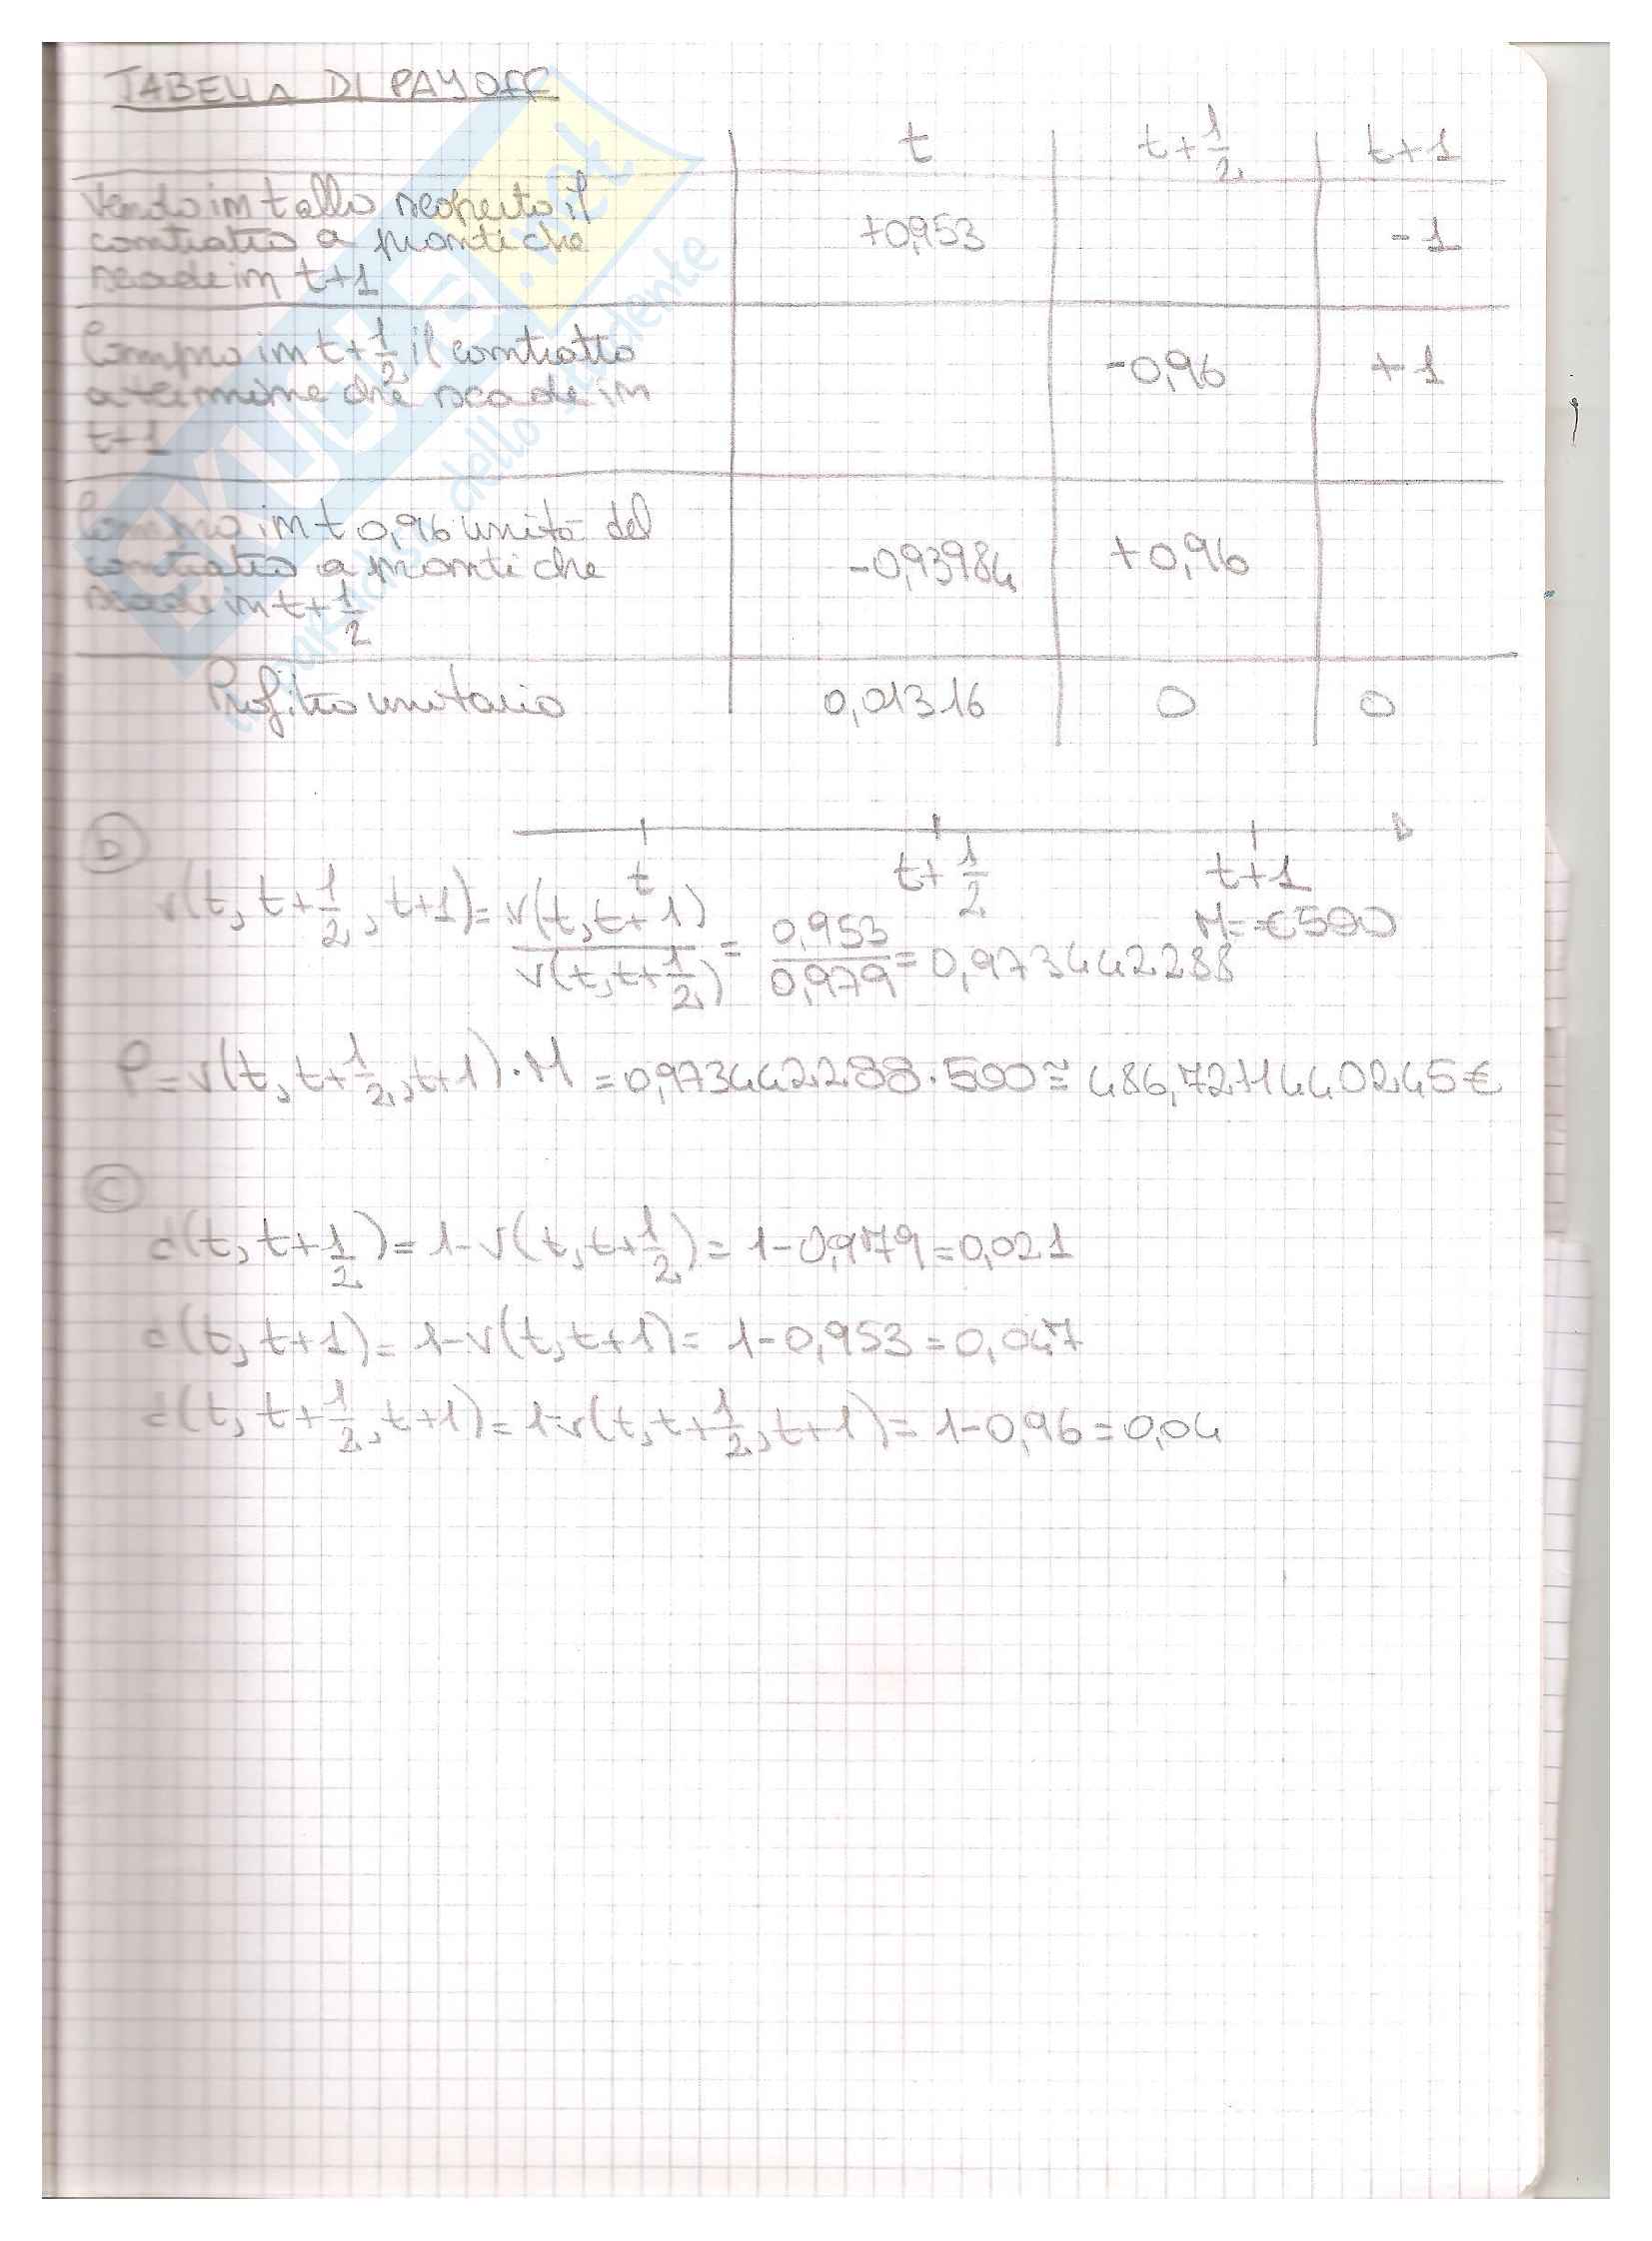 TABELLA DI PAYOFF
t t+1/2 t+1
Vendo in t allo scoperto il
contratto a pronti che
scade in t+1
+0,953 -1
Compro in t+1/2 il contratto
a termine che scade in
t+1
-0,96 +1
Compro in t 0,96 unità del
contratto a pronti che
scade in t+1/2
-0,93984 +0,96
Profitto unitario 0,01316 0 0
b
t t+1/2 t+1
M=€500
v(t, t+1/2, t+1)= v(t,t+1)/v(t,t+1/2) = 0,953/0,979 = 0,973442288
P=v(t,t+1/2,t+1)·M =0,973442288·500≅486,7211440245€
c
d(t, t+1/2)=1-v(t,t+1/2)=1-0,979=0,021
d(t, t+1)=1-v(t,t+1)=1-0,953=0,047
d(t, t+1/2,t+1)=1-v(t,t+1/2,t+1)=1-0,96=0,04